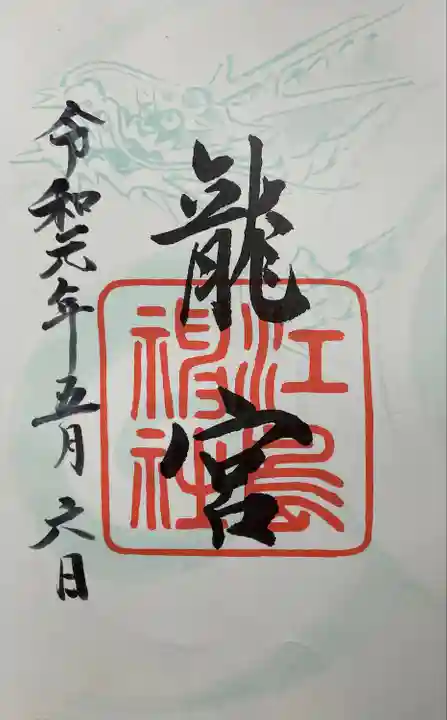 龍宮
江島
神社
令和元年五月六日